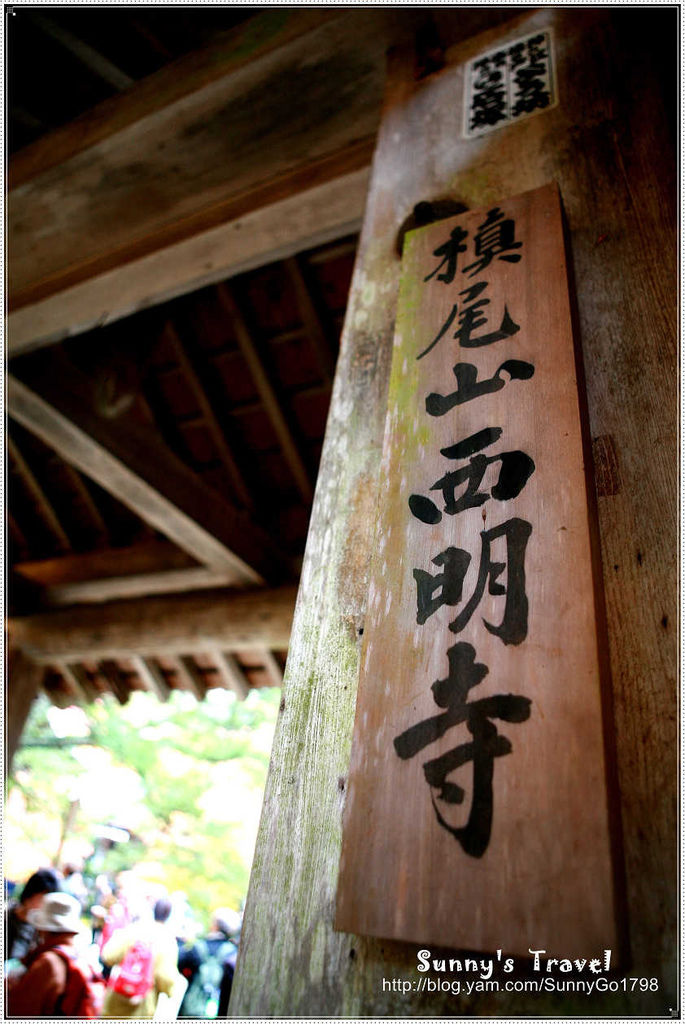 槇尾山西明寺
Sunny's Travel
http://blog.yam.com/SunnyGo1798